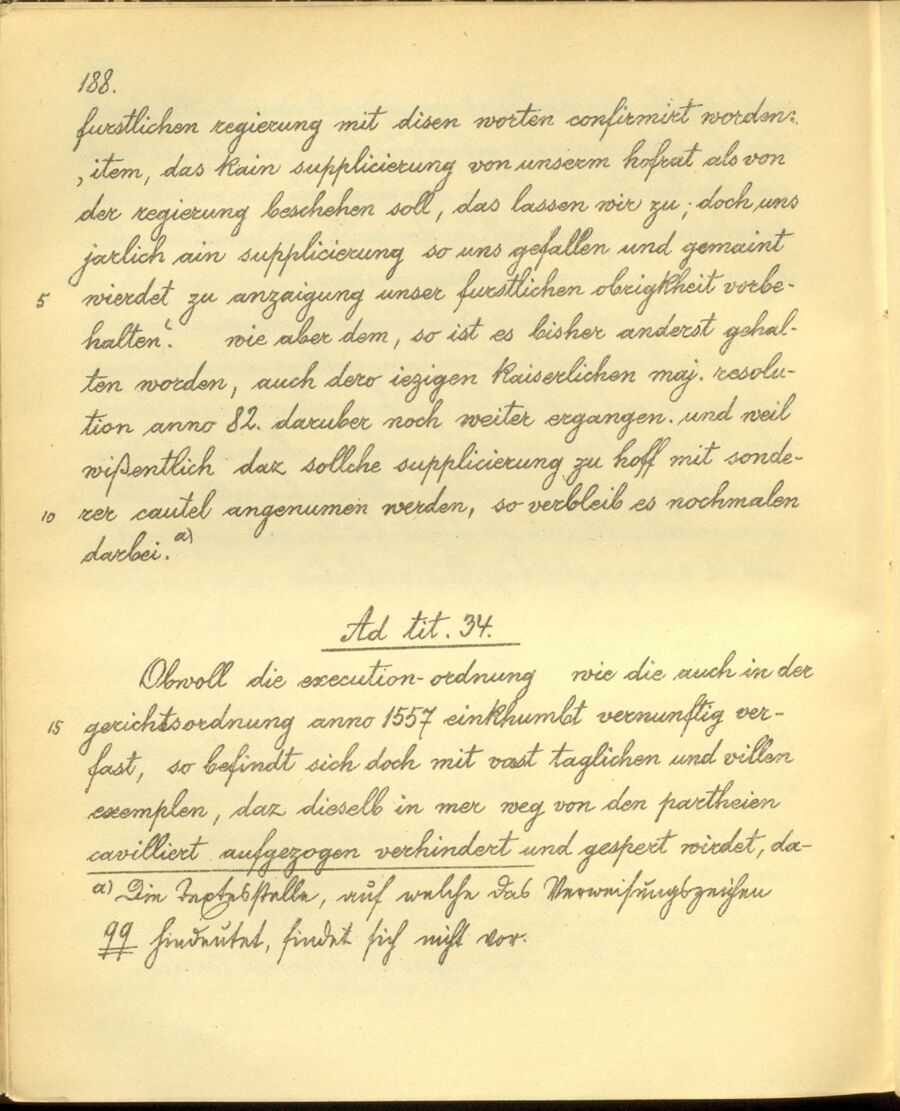 188.
furstlichen regierung mit disen worten confirmirt worden:
‚item, das kain supplicierung von unserm hofrat als von
der regierung beschehen soll, das lassen wir zu; doch uns
jarlich ain supplicierung so uns gefallen und gemaint
5 wierdet zu anzaigung unser furstlichen obrigkheit vorbe-
halten.‘ wie aber dem, so ist es bisher anderst gehal-
ten worden, auch dero iezigen kaiserlichen maj. resolu-
tion anno 82. daruber noch weiter ergangen. und weil
wißentlich daz sollche supplicierung zu hoff mit sonde-
10 rer cautel angenumen werden, so verbleib es nochmalen
darbei. a)
Ad tit. 34.
Obwoll die execution-ordnung wie die auch in der
15 gerichtsordnung anno 1557 einkhumbt vernunftig ver-
fast, so befindt sich doch mit vast taglichen und villen
exemplen, daz dieselb in mer weg von den partheien
cavilliert aufgezogen verhindert und gespert wirdet, da-
a) Die Textesstelle, auf welche das Verweisungszeichen
99 hindeutet, findet sich nicht vor.